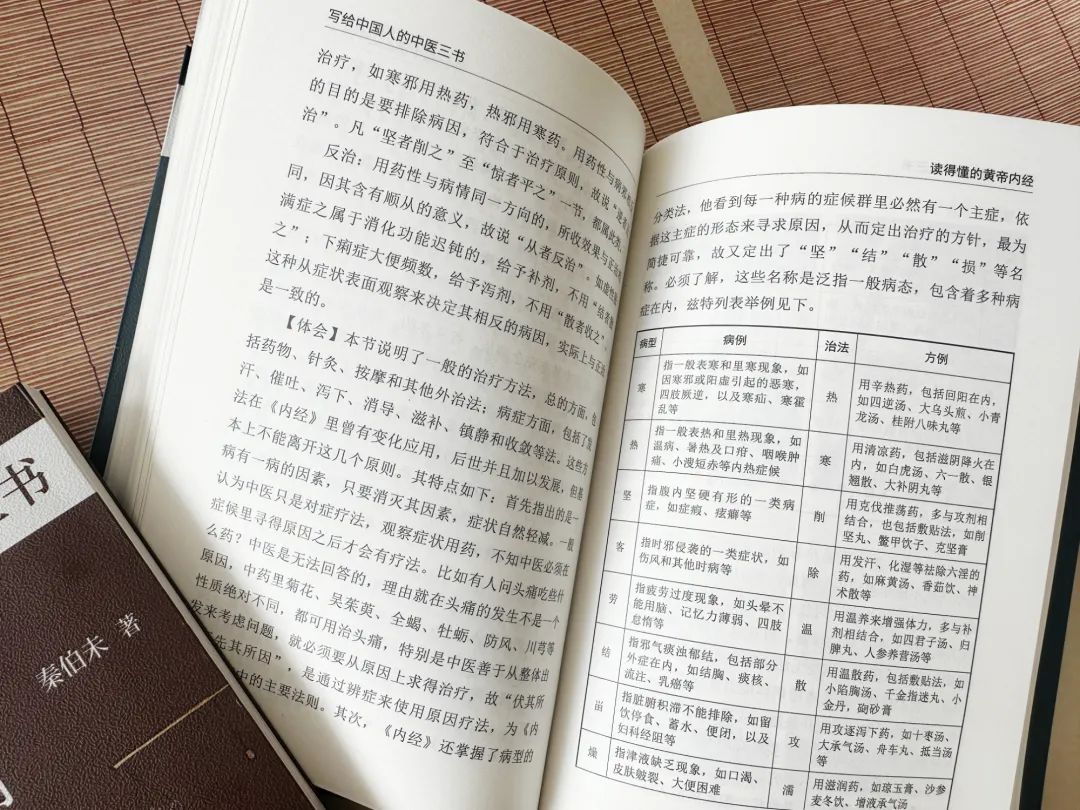 写给中国人的中医三书
治疗，如寒邪用热药，热邪用寒药。用药性与病
的目的是要排除病因，符合于治疗原则，故说
治”。凡“坚者削之”至“惊者平之”一节，都属此类。
反治：用药性与病情同一方向的，所收效果与正治
同，因其含有顺从的意义，故说“从者反治”。如
满症之属于消化功能迟钝的，给予补剂，不用“
之”；下痢症大便频数，给予泻剂，不用“散者收之”，
这种从症状表面观察来决定其相反的病因，实际上与正治
是一致的。
【体会】本节说明了一般的治疗方法，总的方面，包
括药物、针灸、按摩和其他外治法；病症方面，包括了发
汗、催吐、泻下、消导、滋补、镇静和收敛等法。这些方
法在《内经》里曾有变化应用，后世并且加以发展，但基
本上不能离开这几个原则。其特点如下：首先指出的是一
病有一病的因素，只要消灭其因素，症状自然轻减。一般
认为中医只是对症疗法，观察症状用药，不知中医必须在
症候里寻得原因之后才会有疗法。比如有人问头痛吃些什
么药？中医是无法回答的，理由就在头痛的发生不是一个
原因，中药里菊花、吴茱萸、全蝎、牡蛎、防风、川芎等
性质绝对不同，都可用治头痛，特别是中医善于从整体出
发来考虑问题，就必须要从原因上求得治疗，故“伏其所
先其所因”，是通过辨症来使用原因疗法，为《内
中的主要法则。其次，《内经》还掌握了病型的
读得懂的黄帝内经
分类法，他看到每一种病的症候群里必然有一个主症，依
据这主症的形态来寻求原因，从而定出治疗的方针，最为
简捷可靠，故又定出了“坚”“结”“散”“损”等名
称。必须了解，这些名称是泛指一般病态，包含着多种病
症在内，兹特列表举例见下。
病型 病例 治法 方例
寒 指一般表寒和里寒现象，如
因寒邪或阳虚引起的恶寒，
四肢厥逆，以及寒疝、寒霍
乱等
热 用辛热药，包括回阳在内，
如四逆汤、大乌头煎、小青
龙汤、桂附八味丸等
热 指一般表热和里热现象，如
温病、暑热及口疳、咽喉肿
痛、小溲短赤等内热症候
寒 用清凉药，包括滋阴降火在
内，如白虎汤、六一散、银
翘散、大补阴丸等
坚 指腹内坚硬有形的一类病
症，如症瘕、痃癖等
削 用克伐推荡药，多与攻剂相
结合，也包括敷贴法，如削
坚丸、鳖甲饮子、克坚膏
客 指时邪侵袭的一类症状，如
伤风和其他时病等
除 用发汗、化湿等祛除六淫的
药，如麻黄汤、香茹饮、神
术散等
劳 指疲劳过度现象，如头晕不
能用脑、记忆力薄弱、四肢
怠惰等
温 用温养来增强体力，多与补
剂相结合，如四君子汤、归
脾丸、人参养营汤等
结 指邪气痰浊郁结，包括部分
外症在内，如结胸、痰核、
流注、乳癌等
散 用温散药，包括敷贴法，如
小陷胸汤、千金指迷丸、小
金丹，砌砂膏
留 指脏腑积滞不能排除，如留
饮停食、蓄水、便闭，以及
妇科经阻等
攻 用攻逐泻下药，如十枣汤、
大承气汤、舟车丸、抵当汤
等
燥 指津液缺乏现象，如口渴、
皮肤皴裂、大便困难
濡 用滋润药，如琼玉膏、沙参
麦冬饮、增液承气汤
书
秦伯未 著